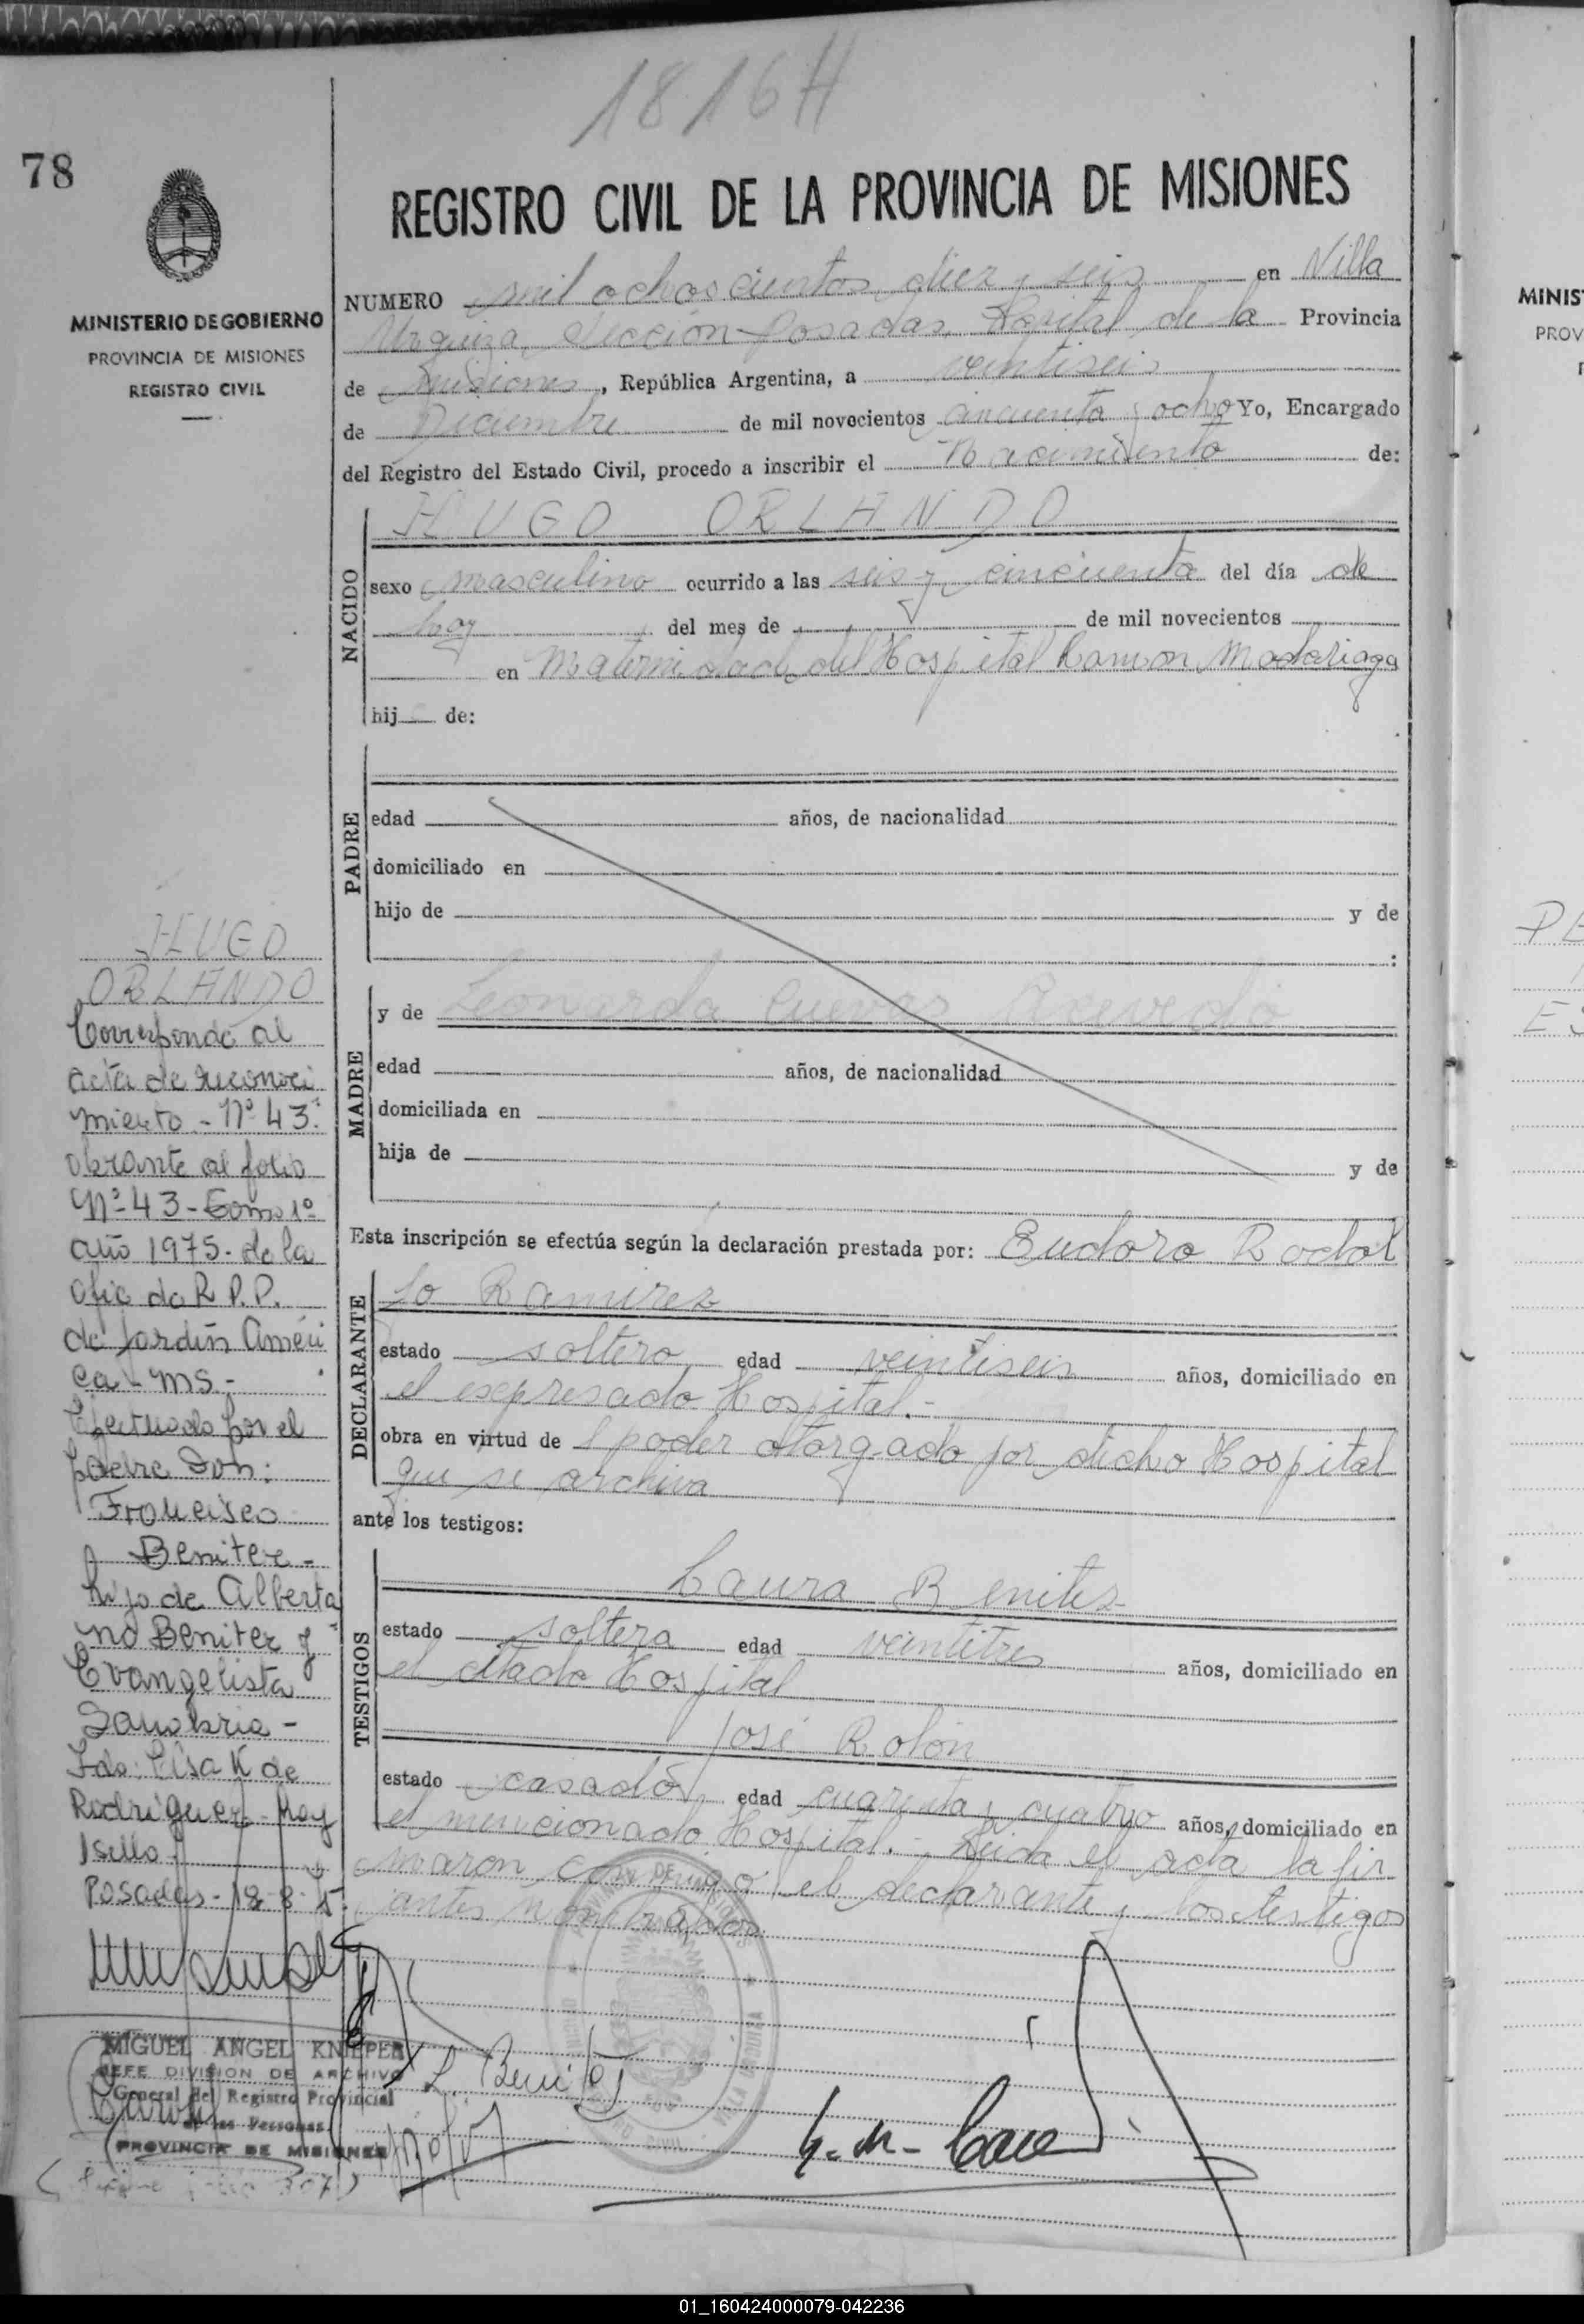 1816H
78
REGISTRO CIVIL DE LA PROVINCIA DE MISIONES
MINISTERIO DE GOBIERNO
PROVINCIA DE MISIONES
REGISTRO CIVIL
NUMERO mil ochoscientos diez y seis en Villa
Urquiza, Sección Posadas, Capital de la Provincia
de Misiones, República Argentina, a veintiseis
de Diciembre de mil novecientos cincuenta y ocho Yo, Encargado
del Registro del Estado Civil, procedo a inscribir el Nacimiento de:
NACIDO
HUGO ORLANDO
sexo masculino ocurrido a las seis y cincuenta del día de
hoy del mes de de mil novecientos
en Maternidad del Hospital Ramon Madariaga
hij de:
PADRE
edad años, de nacionalidad
domiciliado en
hijo de y de
:
MADRE
y de Leonarda Cuevas Acevedo
edad años, de nacionalidad
domiciliada en
hija de y de
Esta inscripción se efectúa según la declaración prestada por: Eudoro Rodol
DECLARANTE
fo Ramirez
estado soltero edad veintiseis años, domiciliado en
el expresado Hospital.-
obra en virtud de l poder otorgado por dicho Hospital
que se archiva
ante los testigos:
TESTIGOS
Laura Benitez
estado soltera edad veintitres años, domiciliado en
el citado Hospital
José Rolón
estado casado edad cuarenta y cuatro años, domiciliado en
el mencionado Hospital.- Leida el acta la fir
maron conmigo el declarante y los testigos
antes nombrados
HUGO
ORLANDO
Corresponde al
acta de reconoci
miento - Nº 43.
obrante al folio
Nº 43 - Tomo 1º
año 1975 - de la
Ofic de R.P.P.
de Jardín Améri
ca - Ms -
Efectuado por el
padre Don:
Francisco
Benitez -
hijo de Alberta
no Benitez y
Evangelista
Sanabria -
Fdo: Elsa K de
Rodriguez - Hay
1 sello
Posadas - 18-8-75
MIGUEL ANGEL KNIEPER
JEFE DIVISION DE ARCHIVO
General del Registro Provincial
de las Personas
PROVINCIA DE MISIONES
L. Benitez
MINIS
PROV
01_160424000079-042236